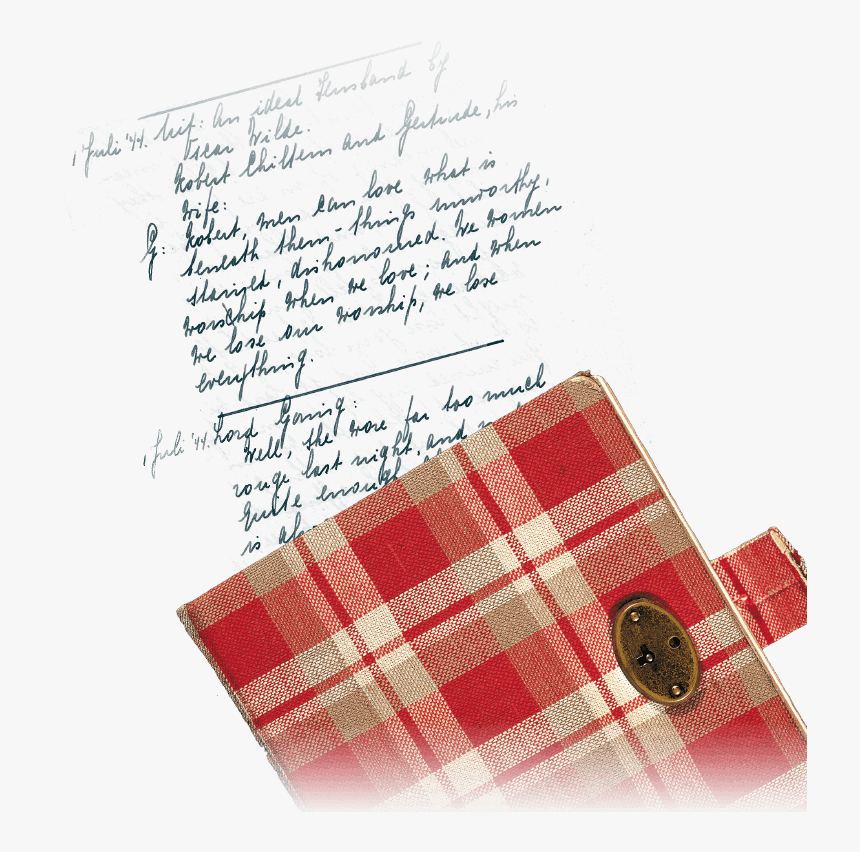 1 Juli '44. Uit: An ideal Husband by
Oscar Wilde.
Robert Chiltern and Gertrude, his
wife:
G: Robert, men can love what is
beneath them – things unworthy,
stained, dishonoured. We women
worship when we love; and when
we lose our worship, we lose
everything.
1 Juli '44. Lord Goring:
Well, she wore far too much
rouge last night, and
quite enough
is